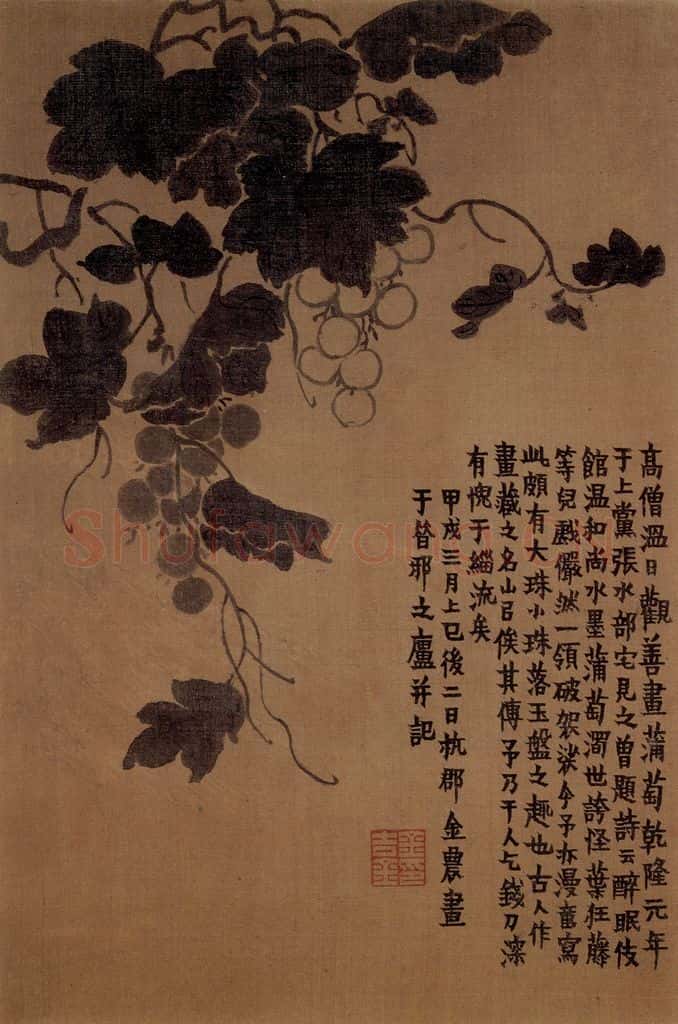 高僧溫日觀善畫蒲萄乾隆元年
于上黨張水部宅見之曾題詩云醉眠伎
館溫和尚水墨蒲萄濶世誇怪葉狂藤
等兒戲儼然一領破袈裟今予亦漫寫
此頗有大珠小珠落玉盤之趣也古人作
畫藏之名山㠯俟其傳予乃干人乞錢刀深
有愧于緇流矣
甲戌三月上巳後二日杭郡金農畫
于昔邪之廬并記